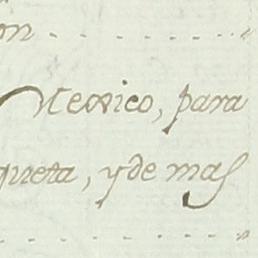 on
Mexico, para
queta, y de mas